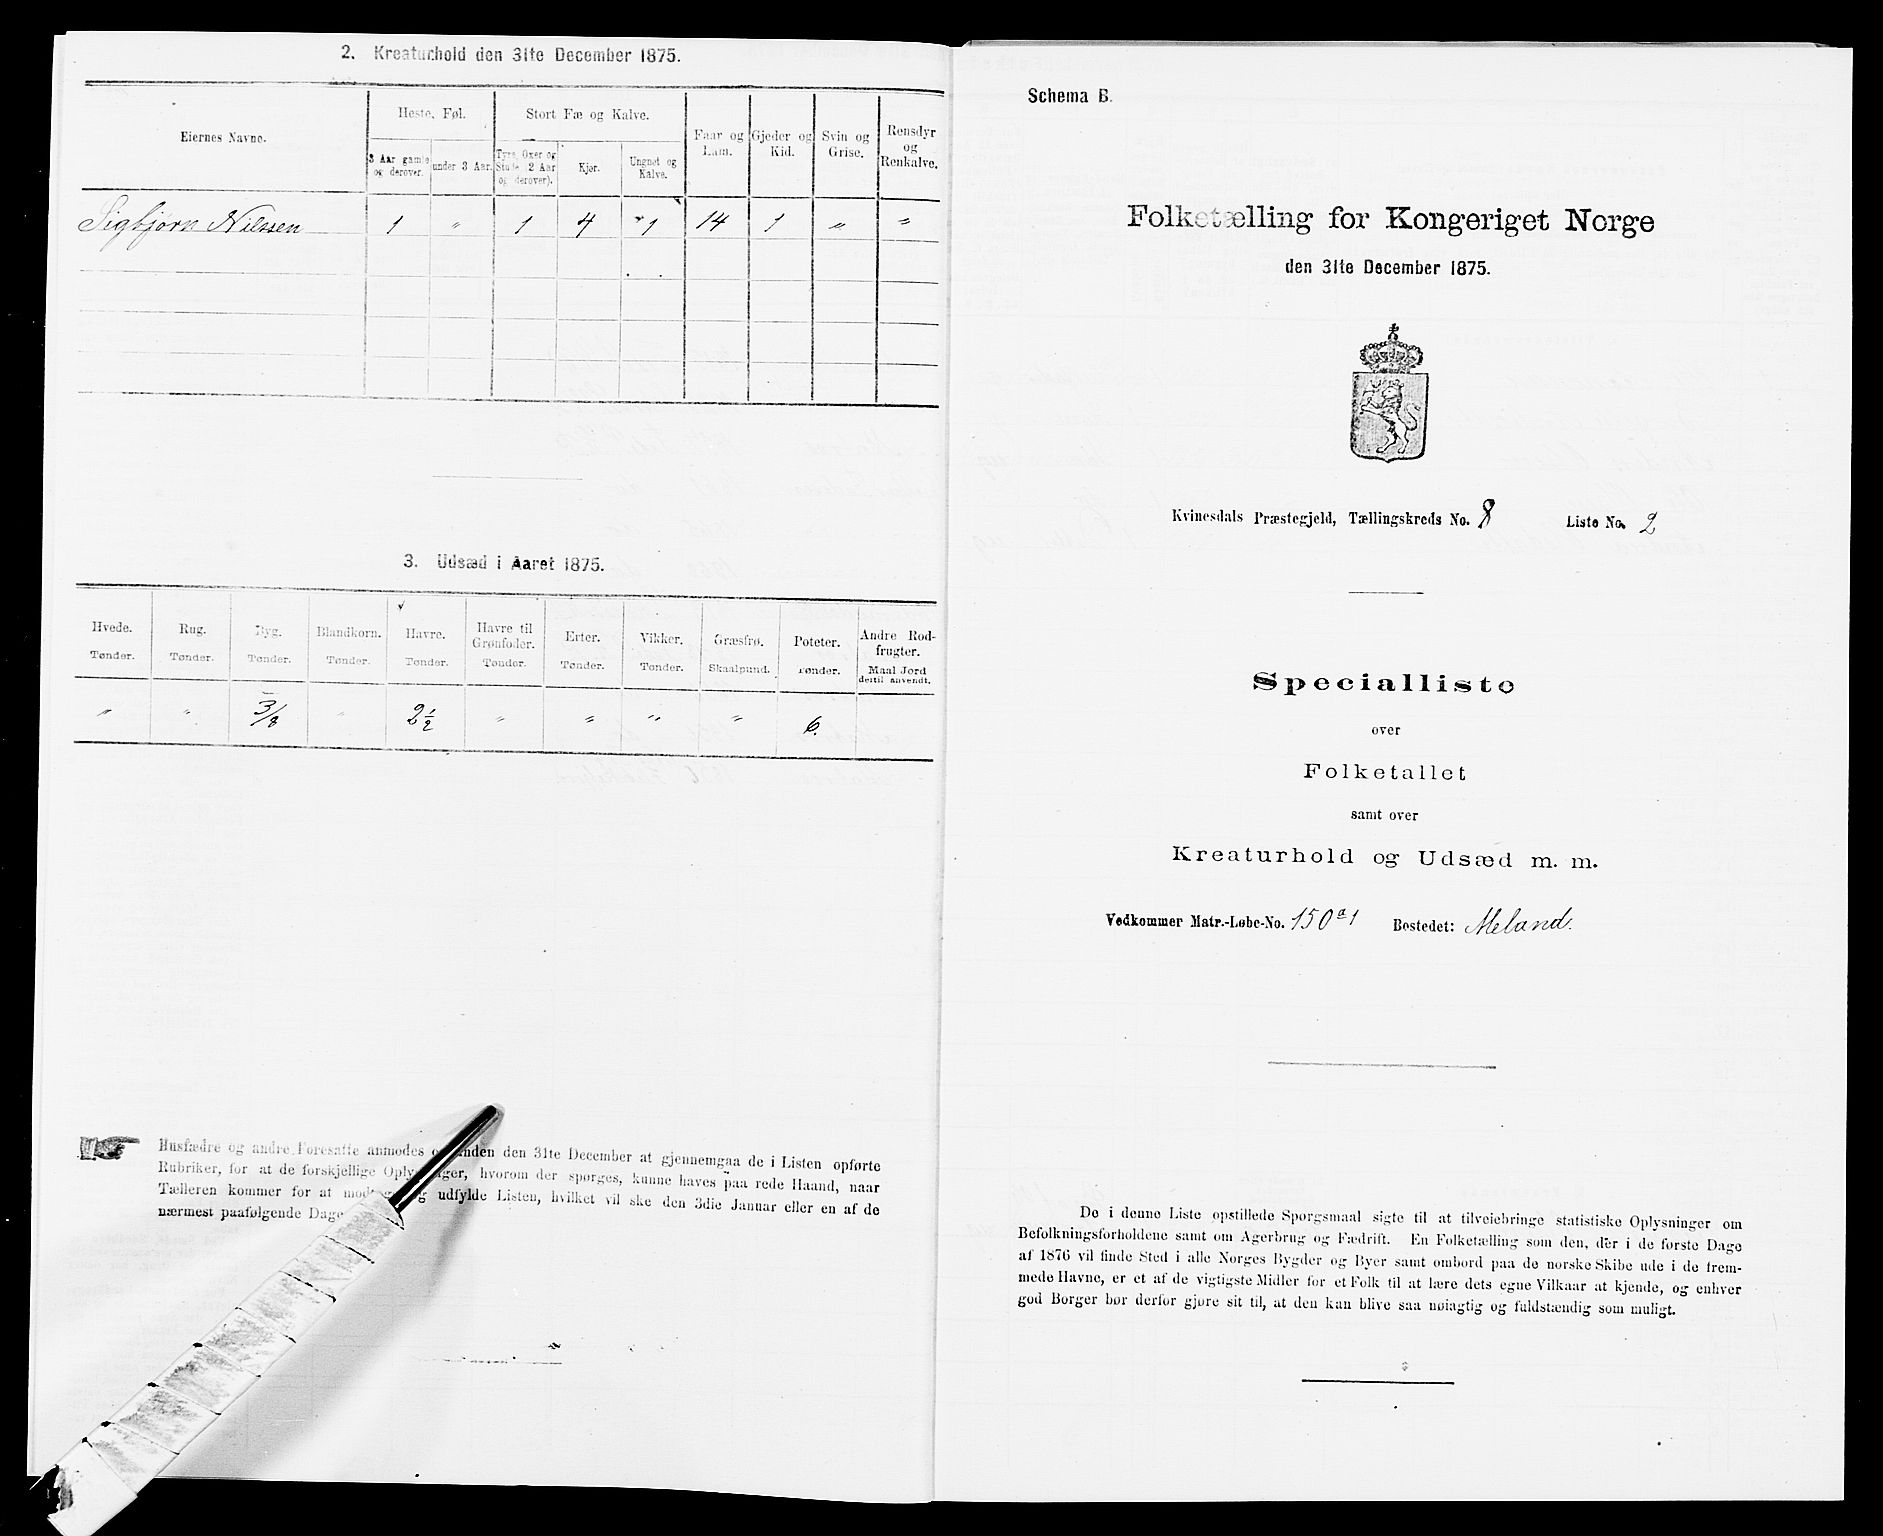 2. Kreaturhold den 31te December 1875.
Eiernes Navne.
Heste, Føl.
3 Aar gamle og derover.
under 3 Aar.
Stort Fæ og Kalve.
Tyre, Oxer og Stude (2 Aar og derover).
Kjør.
Ungnet og Kalve.
Faar og Lam.
Gjeder og Kid.
Svin og Grise.
Rensdyr og Renkalve.
Sigbjørn Nilssen 1 " 1 4 " 1 14 1 " "
3. Udsæd i Aaret 1875.
Hvede. Tønder.
Rug. Tønder.
Byg. Tønder.
Blandkorn. Tønder.
Havre. Tønder.
Havre til Grønfoder. Tønder.
Erter. Tønder.
Vikker. Tønder.
Græsfrø. Skaalpund.
Poteter. Tønder.
Andre Rodfrugter. Maal Jord dertil anvendt.
" " 3/8 " 2 1/2 " " " " 6.
Husfædre og andre Foresatte anmodes om inden den 31te December at gjennemgaa de i Listen opførte
Rubriker, for at de forskjellige Oplysninger, hvorom der spørges, kunne haves paa rede Haand, naar
Tælleren kommer for at modtage og udfylde Listen, hvilket vil ske den 3die Januar eller en af de
nærmest paafølgende Dage
Schema B.
Folketælling for Kongeriget Norge
den 31te December 1875.
Kvinesdals Præstegjeld, Tællingskreds No. 8 Liste No. 2
Specialliste
over
Folketallet
samt over
Kreaturhold og Udsæd m. m.
Vedkommer Matr.-Løbe-No. 150a1 Bostedet: Meland.
De i denne Liste opstillede Spørgsmaal sigte til at tilveiebringe statistiske Oplysninger om
Befolkningsforholdene samt om Agerbrug og Fædrift. En Folketælling som den, der i de første Dage
af 1876 vil finde Sted i alle Norges Bygder og Byer samt ombord paa de norske Skibe ude i de frem-
mede Havne, er et af de vigtigste Midler for et Folk til at lære dets egne Vilkaar at kjende, og enhver
god Borger bør derfor gjøre sit til, at den kan blive saa nøiagtig og fuldstændig som muligt.